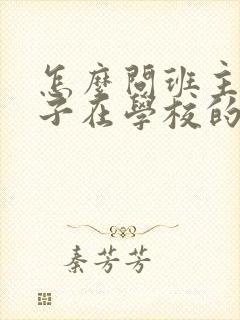 怎麼問班主
子在學校的
秦芳芳